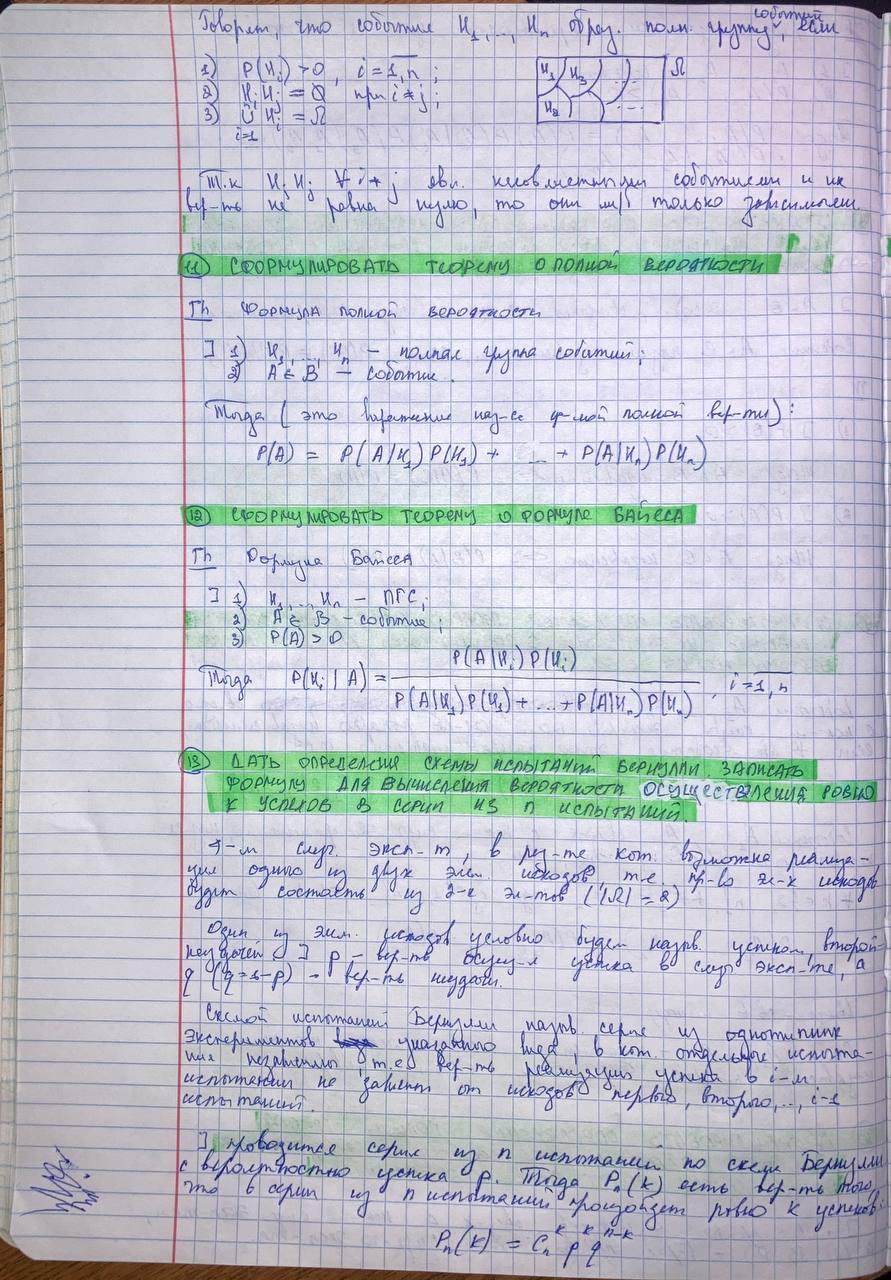 Говорят, что события H₁, ..., Hₙ образ. полн. группу событий, если
1) P(Hᵢ) > 0, i = 1,n;
2) Hᵢ Hⱼ = Ø при i ≠ j;
3) ∪ Hᵢ = Ω
i=1
H₁ H₃ Ω
H₂
Т.к Hᵢ Hⱼ ∀ i ≠ j явл. несовместными событиями и их
вер-ть не равна нулю, то они м/б только зависимыми.
11 СФОРМУЛИРОВАТЬ ТЕОРЕМУ О ПОЛНОЙ ВЕРОЯТНОСТИ
Th Формула полной вероятности
] 1) H₁, ..., Hₙ – полная группа событий;
2) A ∈ B – событие.
Тогда (это выражение наз-ся ф-мой полной вер-ти):
P(A) = P(A|H₁) P(H₁) + ... + P(A|Hₙ) P(Hₙ)
12 СФОРМУЛИРОВАТЬ ТЕОРЕМУ О ФОРМУЛЕ БАЙЕСА
Th Формула Байеса
] 1) H₁, ..., Hₙ – ПГС;
2) A ∈ B – событие;
3) P(A) > 0
Тогда P(Hᵢ | A) = P(A|Hᵢ) P(Hᵢ) / P(A|H₁) P(H₁) + ... + P(A|Hₙ) P(Hₙ), i = 1,n
13 ДАТЬ ОПРЕДЕЛЕНИЕ СХЕМЫ ИСПЫТАНИЙ БЕРНУЛЛИ. ЗАПИСАТЬ
ФОРМУЛУ ДЛЯ ВЫЧИСЛЕНИЯ ВЕРОЯТНОСТИ ОСУЩЕСТВЛЕНИЯ РОВНО
К УСПЕХОВ В СЕРИИ ИЗ П ИСПЫТАНИЙ.
случ. эксп-т, в рез-те кот. возможна реализа-
ция одного из двух элем. исходов т.е. пр-во эл-х исходов
будет состоять из 2-х эл-тов (|Ω| = 2)
Один из элем. исходов условно будем назыв. успехом, второй -
неудачей ] p – вер-ть осущ-я успеха в случ эксп-те, а
q (q = 1-p) – вер-ть неудачи.
Схемой испытаний Бернулли назыв. серию из однотипных
экспериментов указанного вида, в кот. отдельные испыта-
ния независимы, т.е. вер-ть реализации успеха в i-м
испытании не зависит от исходов первого, второго, ..., i-1
испытаний.
] проводится серия из n испытаний по схеме Бернулли
с вероятностью успеха p. Тогда Pₙ(k) есть вер-ть того,
что в серии из n испытаний произойдет ровно k успехов.
Pₙ(k) = Cₙᵏ pᵏ qⁿ⁻ᵏ